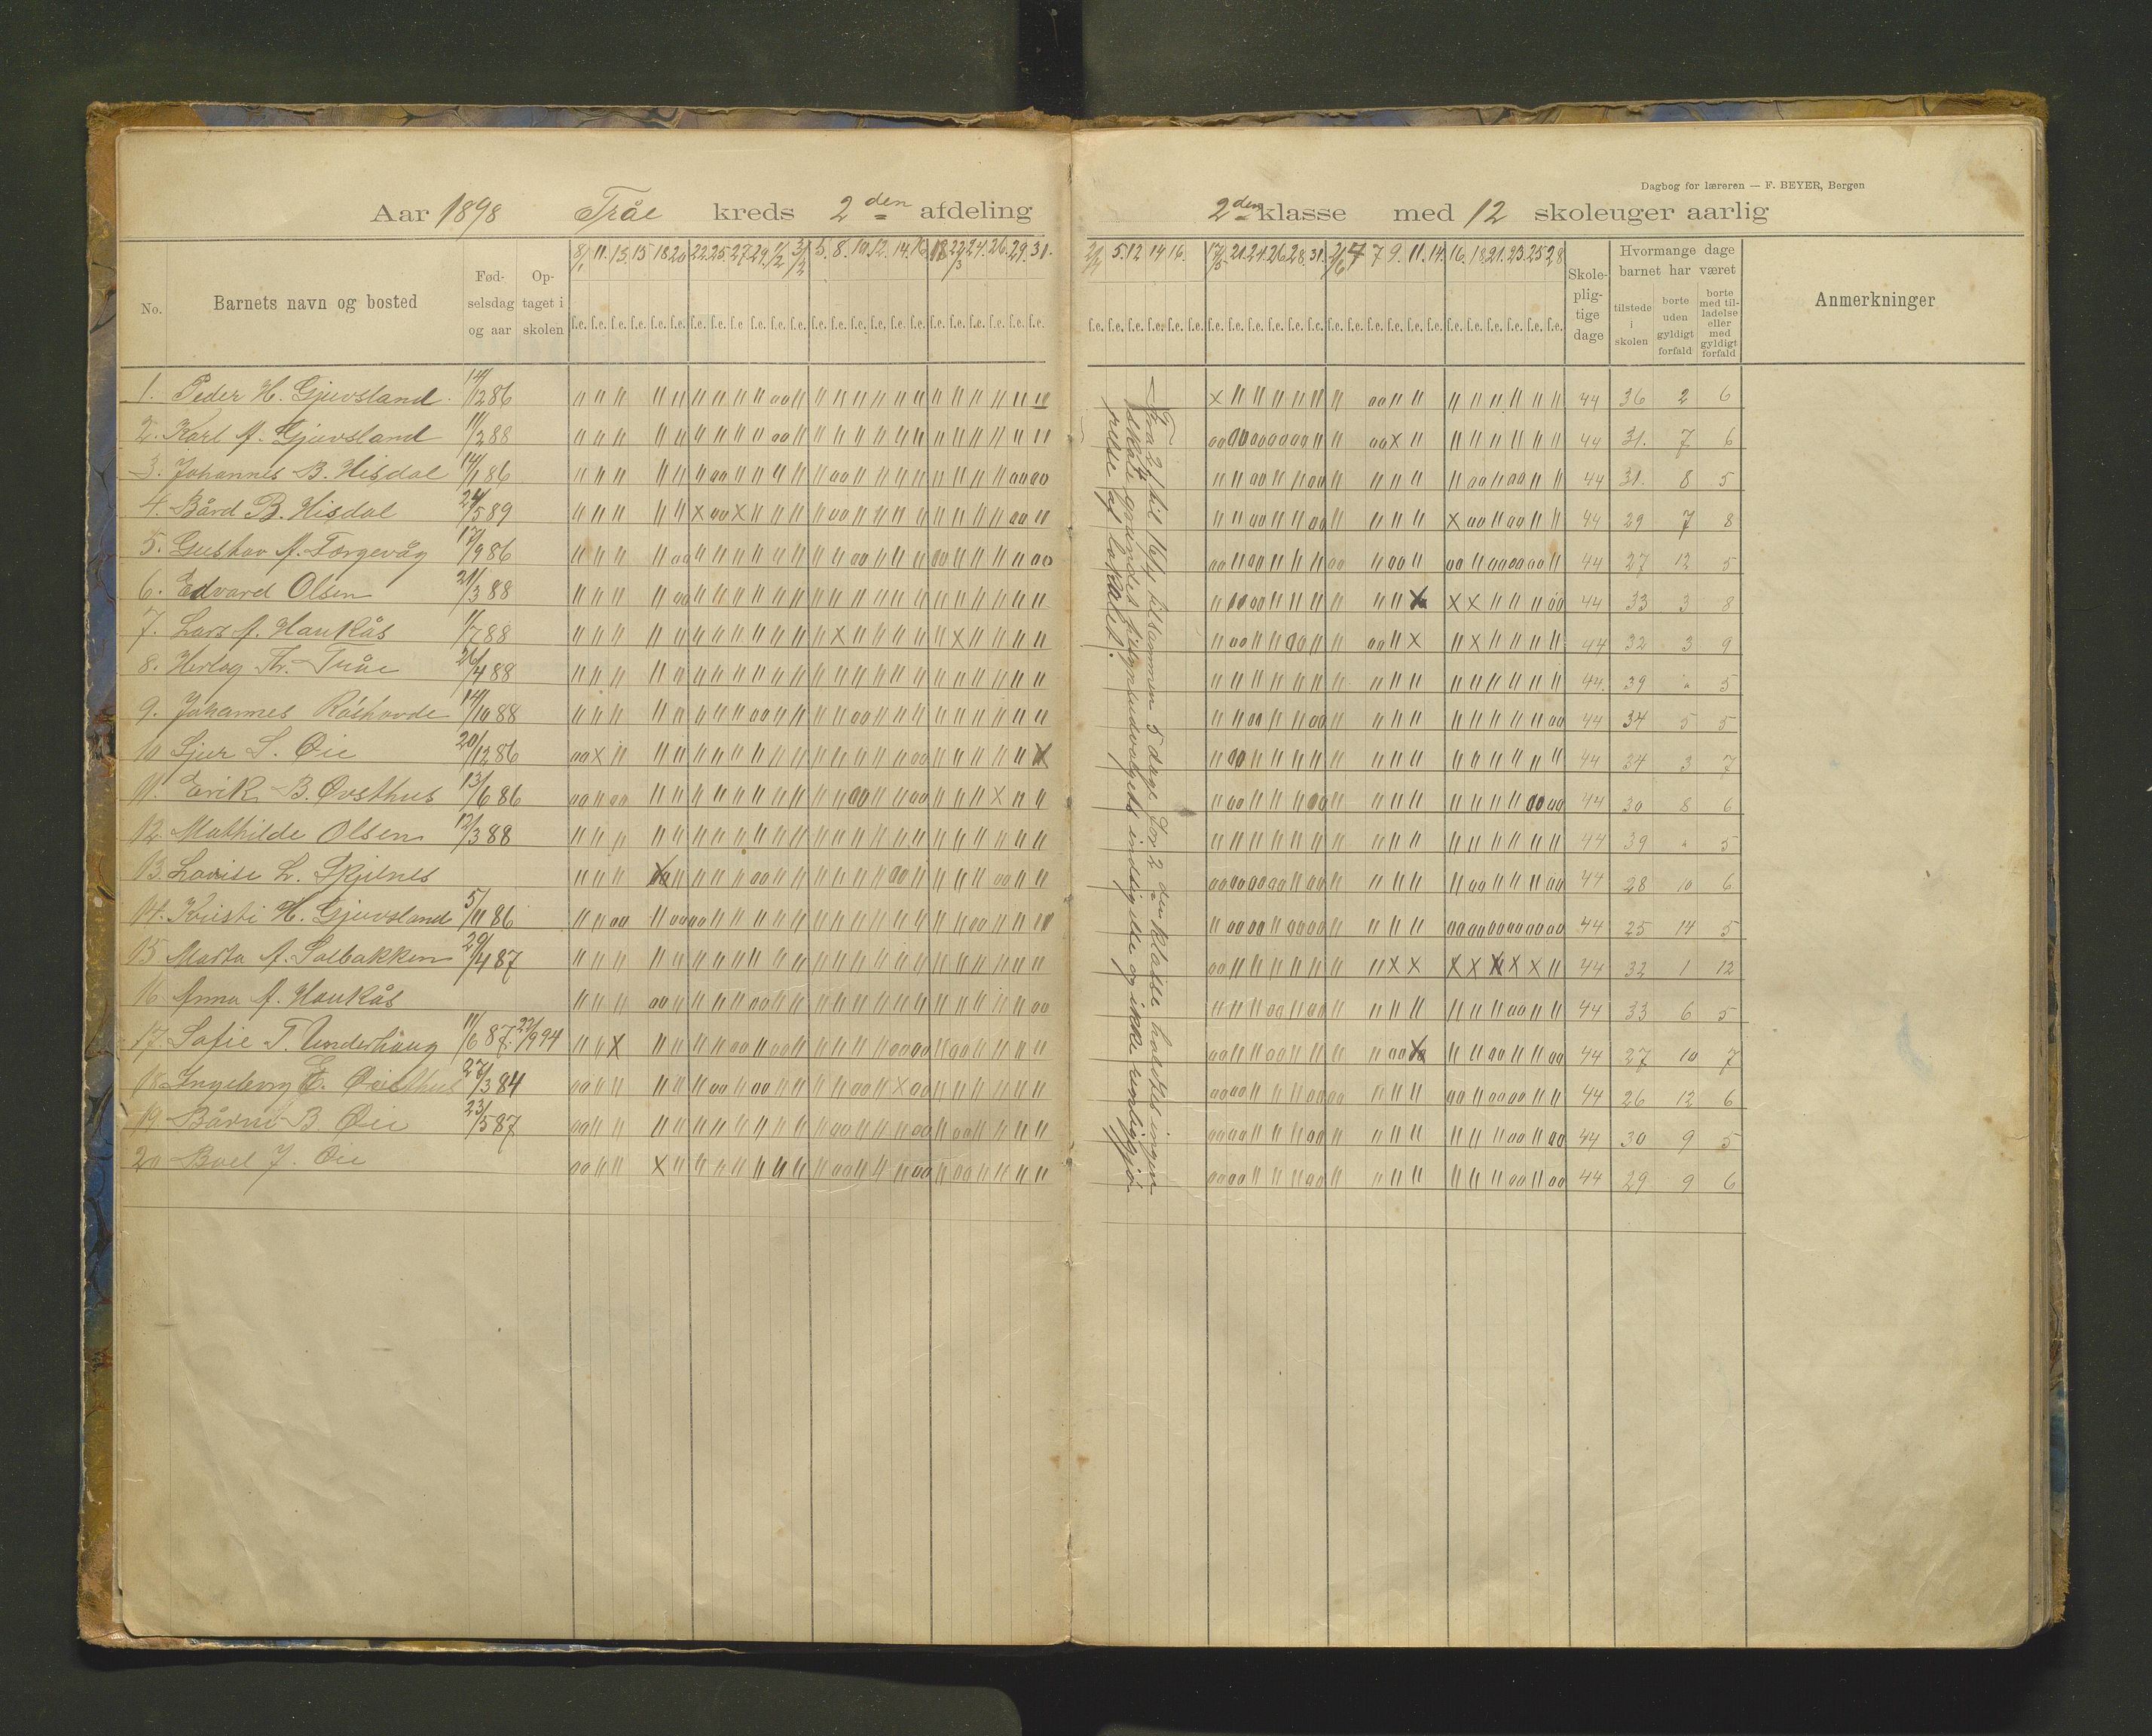 Dagbog for læreren — F. BEYER, Bergen
Aar 1898 Tråe kreds 2den afdeling 2den klasse med 12 skoleuger aarlig
No. Barnets navn og bosted Fød-selsdag og aar Op-taget i skolen
8/1 11. 13. 15 18 20 22 25. 27. 29. 1/2 3/2 5. 8. 10. 12. 14. 16. 18 22/3 24. 26. 29. 31.
2/4 5. 12 14 16. 17/5 21. 24. 26 28. 31. 2/6 4 7 9. 11. 14. 16. 18. 21. 23. 25 28
f.e. f.e. f.e. f.e. f.e. f.e. f.e. f.e. f.e. f.e. f.e. f.e. f.e. f.e. f.e. f.e. f.e. f.e. f.e. f.e. f.e. f.e. f.e. f.e.
Skole-plig-tige dage
Hvormange dage barnet har været
tilstede i skolen
borte uden gyldigt forfald
borte med til-ladelse eller med gyldigt forfald
Anmerkninger
1. Peder H. Gjuvsland. 14/12 86 44 36 2 6
2. Karl A. Gjuvsland 11/2 88 44 31. 7 6
3. Johannes B. Hisdal 14/1 86 44 31. 8 5
4. Bård B. Hisdal 24/5 89 44 29 7 8
5. Gustav A. Torgevåg 17/9 86 44 27 12 5
6. Edvard Olsen 21/3 88 44 33 3 8
7. Lars A. Haukås 1/7 88 44 32 3 9
8. Herlog Th. Tråe 26/4 88 44. 39 " 5
9. Johannes Råshovde 14/10 88 44 34 5 5
10 Sjur S. Øie 20/12 86 44 34 3 7
11. Erik B. Øvsthus 13/6 86 44 30 8 6
12. Mathilde Olsen 12/3 88 44 39 " 5
13. Lovise L. Skjelnes 44 28 10 6
14. Kristi H. Gjuvsland 5/11 86 44 25 14 5
15 Marta A. Solbakken 29/4 87 44 32 1 12
16 Anna A. Haukås 44 33 6 5
17. Sofie T. Underhaug 11/6 87. 22/9 94 44 27 10 7
18. Ingeborg E. Øvsthus 27/3 84 44 26 12 6
19. Bårni B. Øie 23/5 87 44 30 9 5
20 Boel J. Øie 44 29 9 6
Fra 2/4 til 16/4 tilsammen 5 dage for 2den klasse holdtes ingen
skole grundet tilsynsudvalgets indsigelse og ikke renligjø-
relse af lokalet.